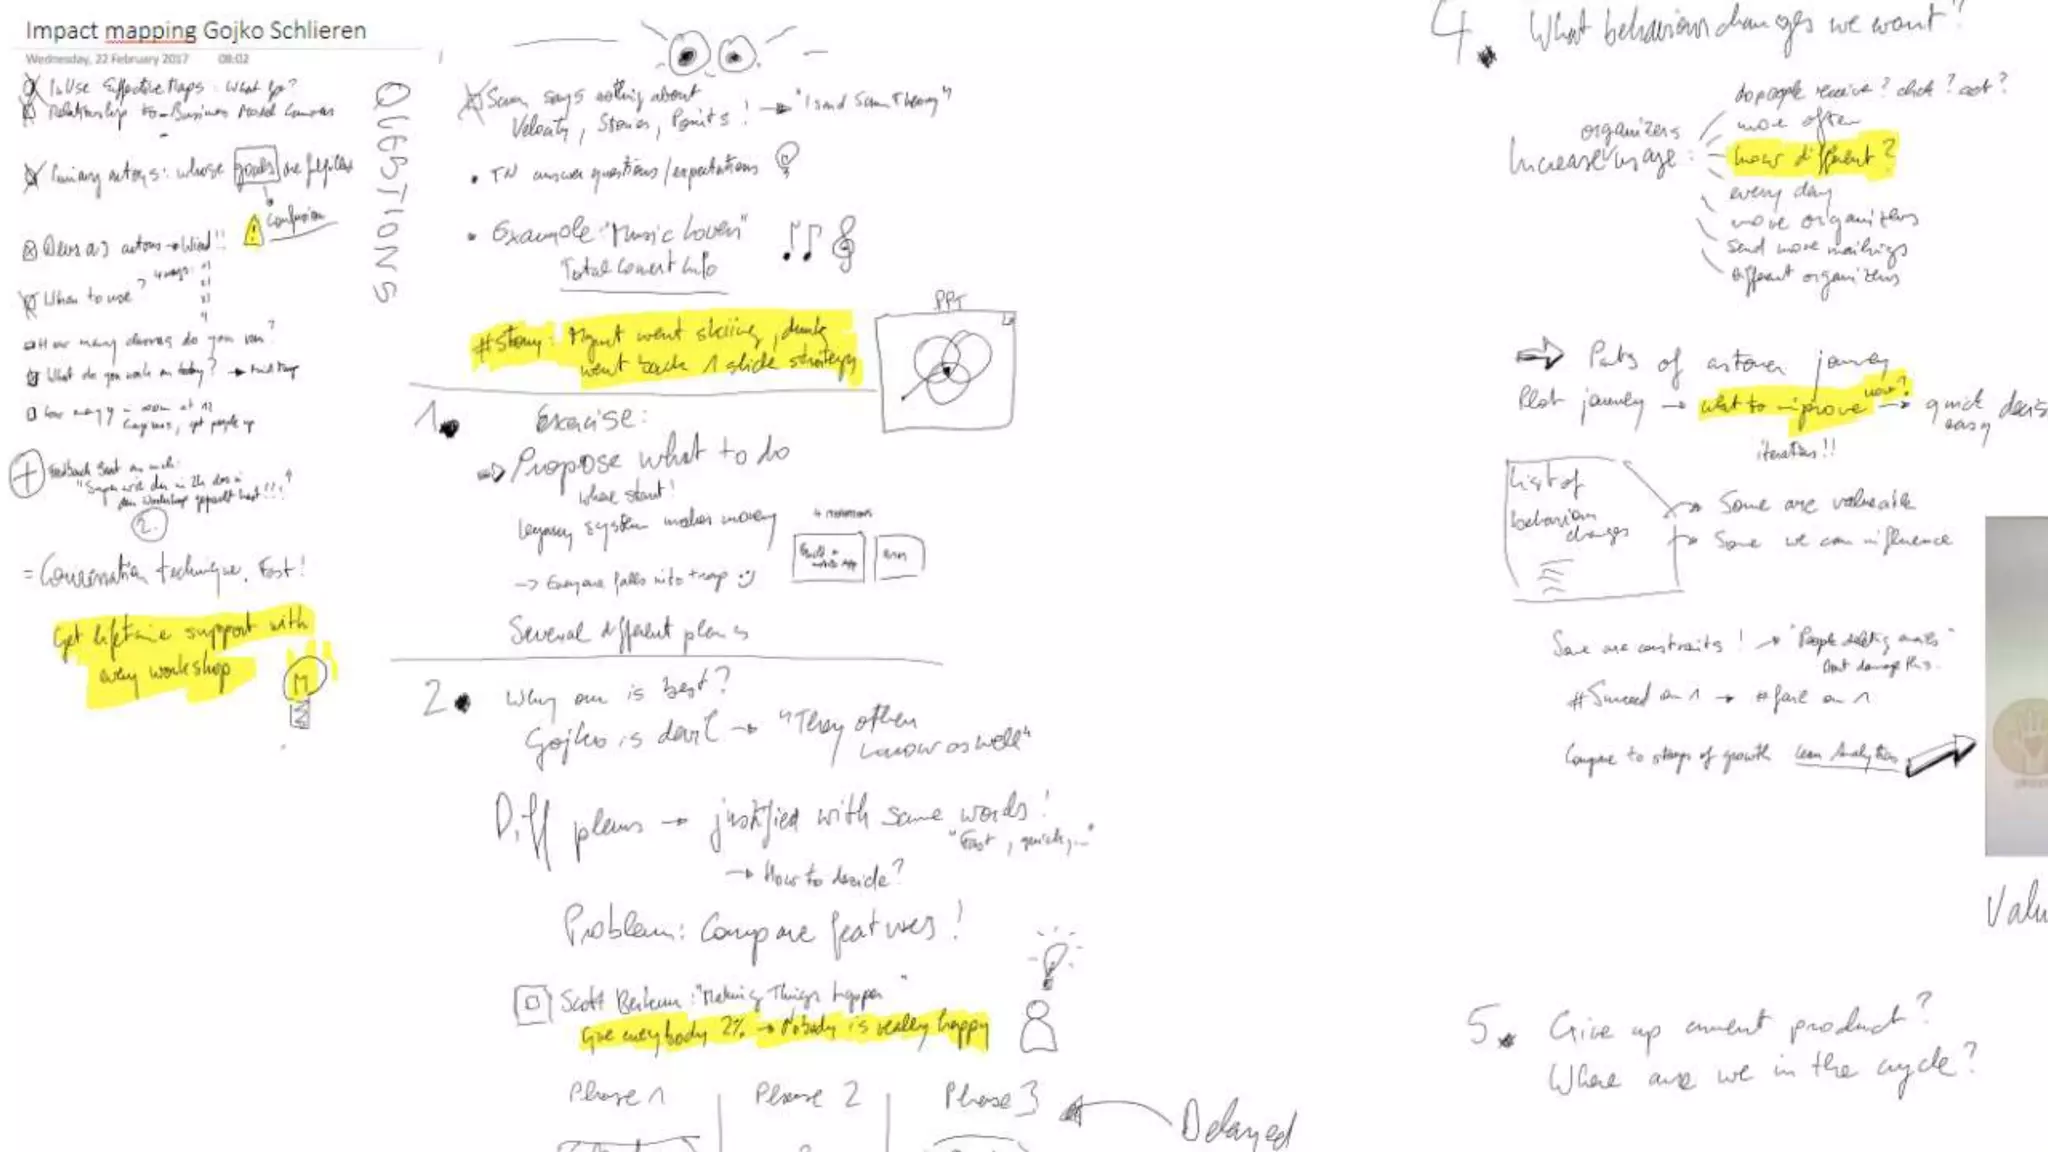 Impact mapping Gojko Schlieren
Wednesday, 22 February 2017 08:02
In Use Effective Maps: What for?
Relationship to Business Model Canvas
Primary actors: whose goals are fulfilled
Confusion
Devs as actors → Wird!!
When to use?
How many do you use?
What do you work on today? →
+ Feedback
"Super wie du in 2h das in
den Workshop gepackt hast!!!"
2.
= Conversation technique. Fast!
Get lifetime support with
every workshop
M
QUESTIONS
Scrum says nothing about
Velocity, Stories, Points! → "I send Scrum Theory"
• TN answer questions/expectations
• Example "Music Lovers"
Total Concert Info
#Story: Mgmt went skiing, drunk
went back 1 slide strategy
PPT
1. Exercise:
⇒ Propose what to do
where start!
Legacy system makes money
→ Everyone falls into trap
Several different plans
2. Why our is best?
Gojko is devil → "They often
know as well"
Diff plans → justified with same words!
"Fast, quick, ..."
→ How to decide?
Problem: Compare features!
Scott Berkun: "Making Things happen"
Give everybody 2% → Nobody is really happy
Phase 1
Phase 2
Phase 3
Delayed
4. What behaviour changes we want?
do people receive? click? act?
organizers
more often
Increase usage:
how different?
every day
more organizers
send more mailings
different organizers
⇒ Parts of customer journey
Plot journey → what to improve now? → quick decis
easy
iterations!!
List of
behaviour
changes
Some are valuable
Some we can influence
Some are constraints! → "People deleting emails"
Dont damage this.
#Succeed on 1 → #fail on 1
Compare to stages of growth Lean Analytics
Valu
5. Give up current product?
Where are we in the cycle?